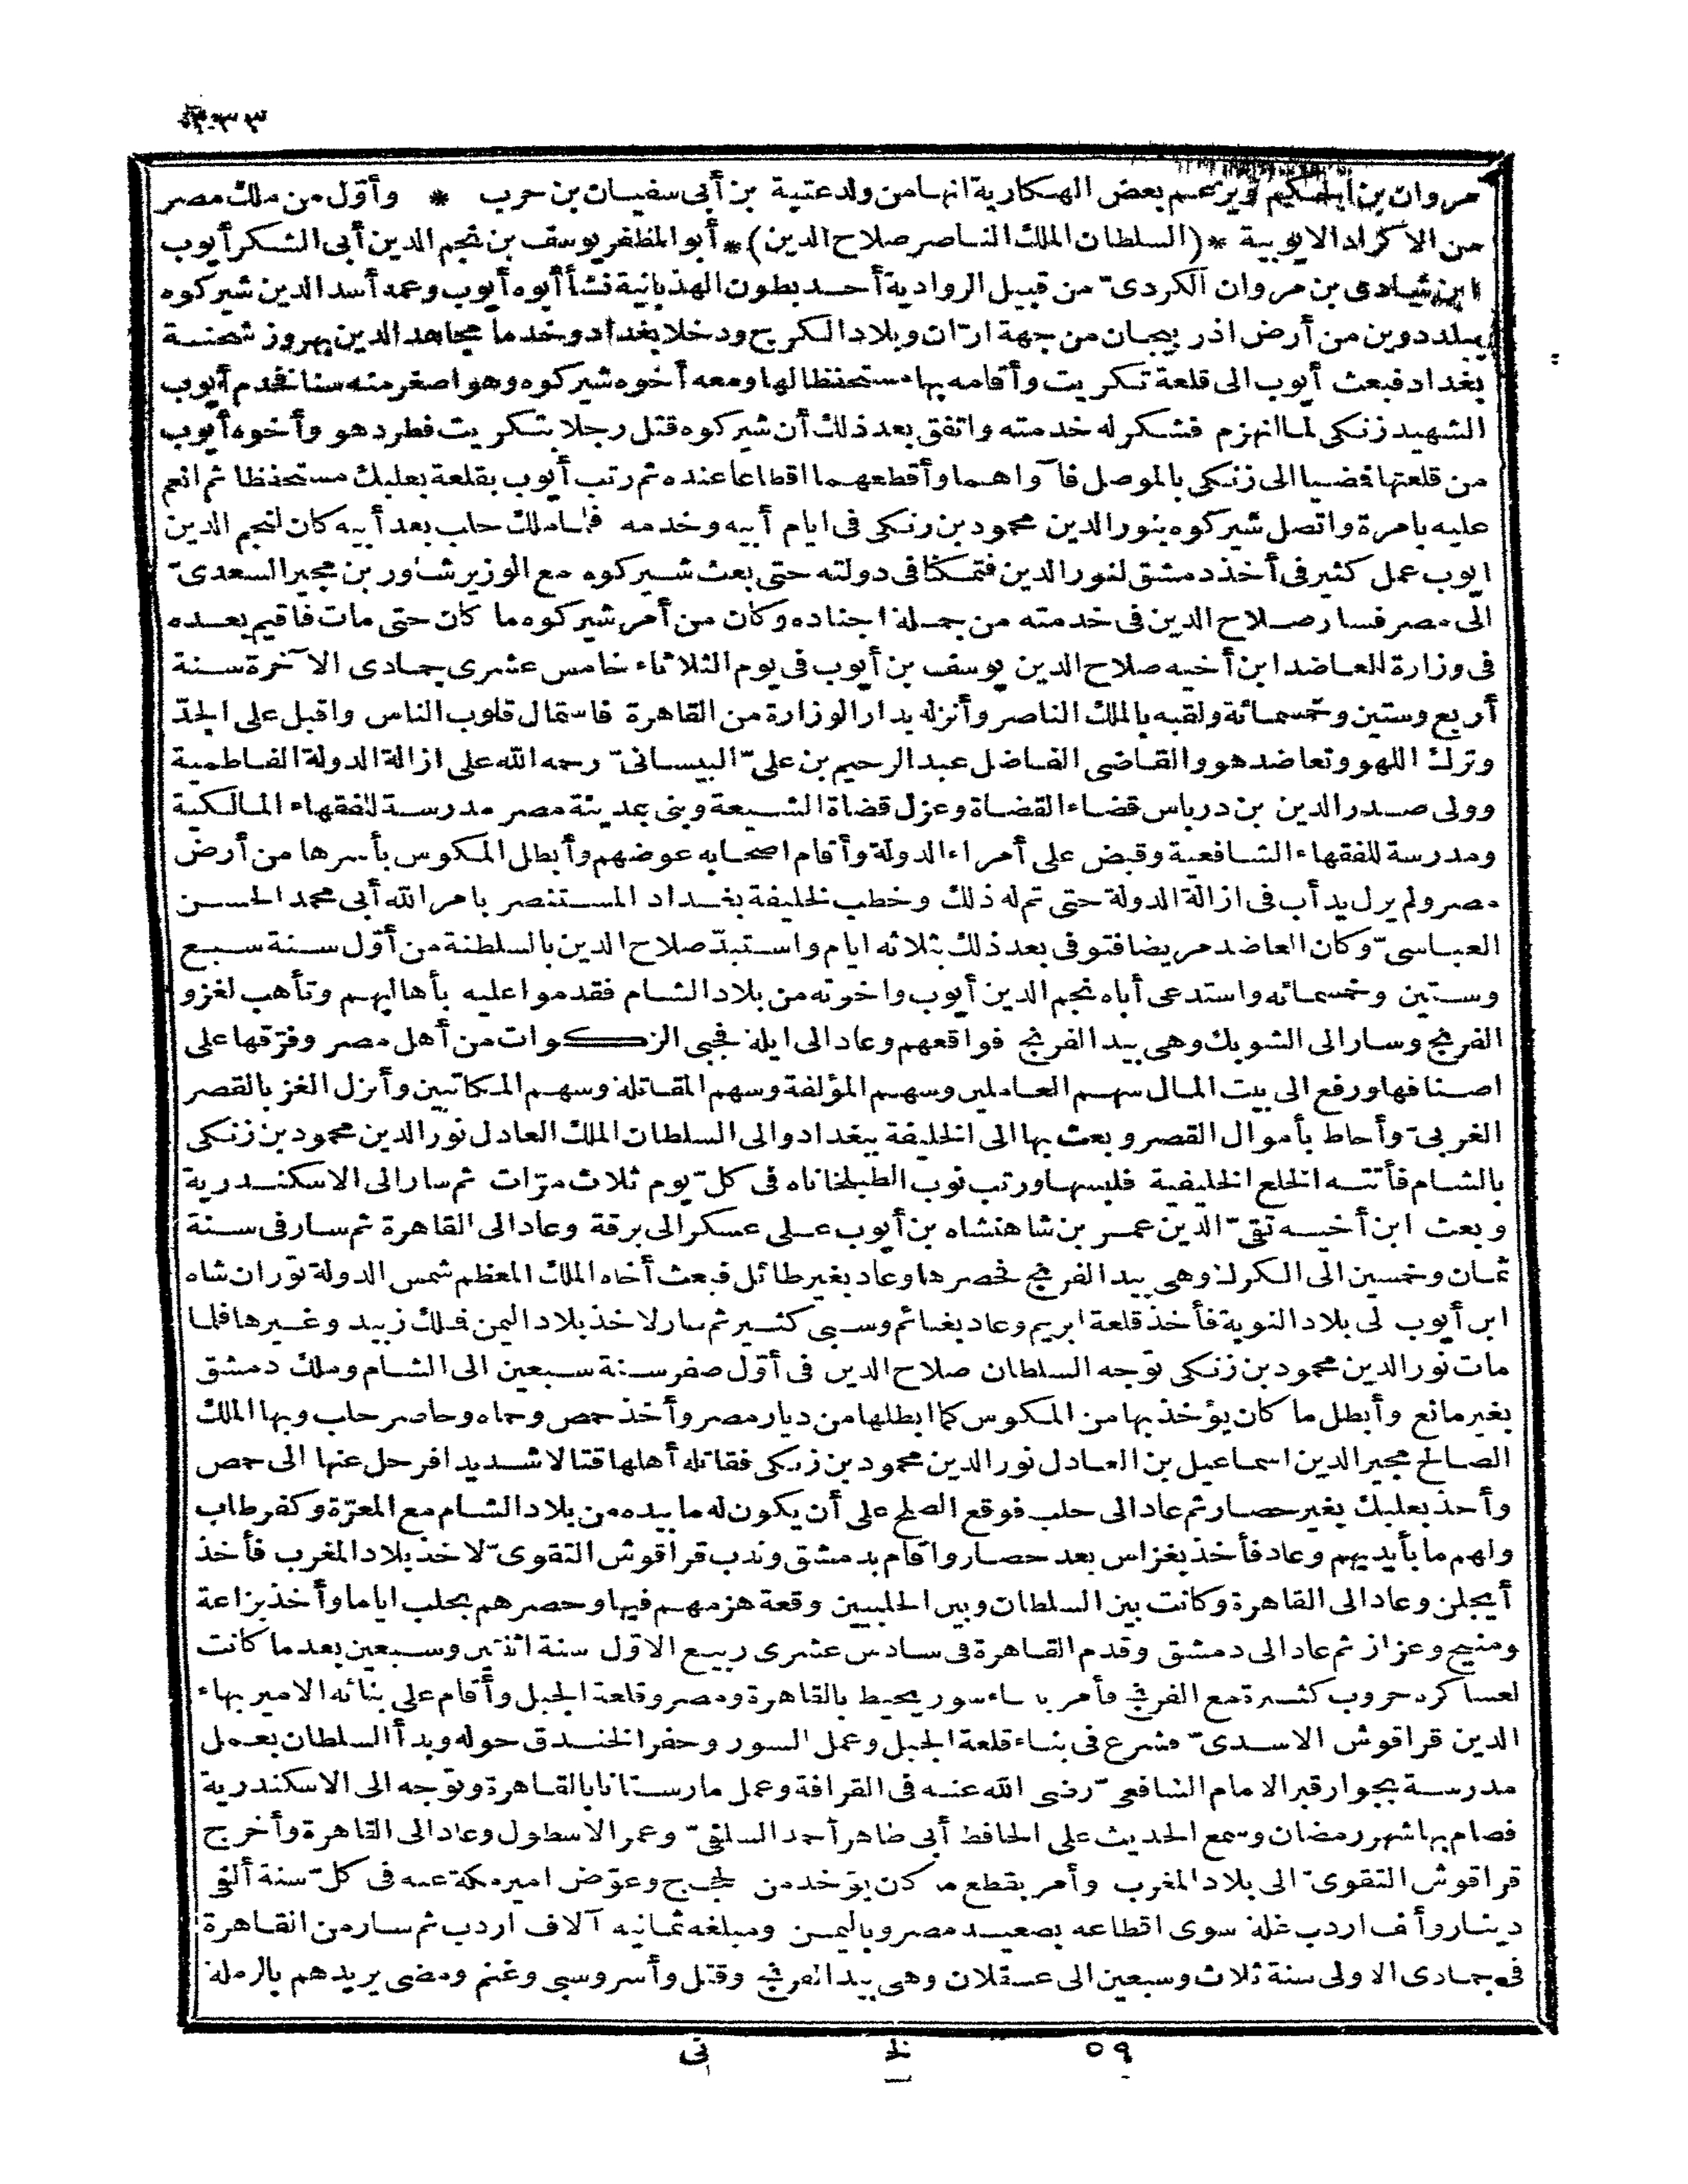 مروان بن الحكيم ويزعم بعض الهكارية انها من ولد عتبة بن أبى سفيان بن حرب * وأول من ملك مصر
من الاكراد الايوبية *(السلطان الملك الناصر صلاح الدين)* أبو المظفر يوسف بن نجم الدين أبى الشكر أيوب
ابن شادى بن مروان الكردىّ من قبيل الروادية أحد بطون الهذبانية نشأ أبوه أيوب وعمه أسد الدين شيركوه
ببلد دوين من أرض اذربيجان من جهة ارّان وبلاد الكرج ودخلا بغداد وخدما مجاهد الدين بهروز شحنة
بغداد فبعث أيوب الى قلعة تكريت وأقامه بها مستحفظا لها ومعه أخوه شيركوه وهو اصغر منه سنا فخدم أيوب
الشهيد زنكى لما انهزم فشكر له خدمته واتفق بعد ذلك أن شيركوه قتل رجلا بتكريت فطرد هو وأخوه أيوب
من قلعتها فمضيا الى زنكى بالموصل فآواهما وأقطعهما اقطاعا عنده ثم رتب أيوب بقلعة بعلبك مستحفظا ثم انعم
عليه بامرة واتصل شيركوه بنور الدين محمود بن زنكى فى ايام أبيه وخدمه فلما ملك حلب بعد أبيه كان لنجم الدين
ايوب عمل كثير فى أخذ دمشق لنور الدين فتمكنا فى دولته حتى بعث شيركوه مع الوزير شاور بن مجير السعدىّ
الى مصر فسار صلاح الدين فى خدمته من جملة اجناده وكان من أمر شيركوه ما كان حتى مات فاقيم بعده
فى وزارة العاضد ابن أخيه صلاح الدين يوسف بن أيوب فى يوم الثلاثاء خامس عشرى جمادى الآخرة سنة
أربع وستين وخمسمائة ولقبه بالملك الناصر وأنزله بدار الوزارة من القاهرة فاستمال قلوب الناس واقبل على الجدّ
وترك اللهو وتعاضد هو والقاضى الفاضل عبد الرحيم بن علىّ البيسانىّ رحمه الله على ازالة الدولة الفاطمية
وولى صدر الدين بن درباس قضاء القضاة وعزل قضاة الشيعة وبنى بمدينة مصر مدرسة للفقهاء المالكية
ومدرسة للفقهاء الشافعية وقبض على أمراء الدولة وأقام اصحابه عوضهم وأبطل المكوس بأسرها من أرض
مصر ولم يزل يدأب فى ازالة الدولة حتى تم له ذلك وخطب لخليفة بغداد المستنصر بامر الله أبى محمد الحسن
العباسىّ وكان العاضد مريضا فتوفى بعد ذلك بثلاثه ايام واستبدّ صلاح الدين بالسلطنة من أوّل سنة سبع
وستين وخمسمائه واستدعى أباه نجم الدين أيوب واخوته من بلاد الشام فقدموا عليه بأهاليهم وتأهب لغزو
الفرنج وسار الى الشوبك وهى بيد الفرنج فواقعهم وعاد الى ايلة فجبى الزكوات من أهل مصر وفرّقها على
اصنافها ورفع الى بيت المال سهم العاملين وسهم المؤلفة وسهم المقاتلة وسهم المكاتبين وأنزل الغز بالقصر
الغربىّ وأحاط بأموال القصر وبعث بها الى الخليفة ببغداد والى السلطان الملك العادل نور الدين محمود بن زنكى
بالشام فأتته الخلع الخليفية فلبسها ورتب نوب الطبلخاناه فى كلّ يوم ثلاث مرّات ثم سار الى الاسكندرية
وبعث ابن أخيه تقىّ الدين عمر بن شاهنشاه بن أيوب على عسكر الى برقة وعاد الى القاهرة ثم سار فى سنة
ثمان وخمسين الى الكرك وهى بيد الفرنج فحصرها وعاد بغير طائل فبعث أخاه الملك المعظم شمس الدولة توران شاه
ابن أيوب لى بلاد النوبة فأخذ قلعة ابريم وعاد بغنائم وسبى كثير ثم سار لاخذ بلاد اليمن فملك زبيد وغيرها فلما
مات نور الدين محمود بن زنكى توجه السلطان صلاح الدين فى أوّل صفر سنة سبعين الى الشام وملك دمشق
بغير مانع وأبطل ما كان يؤخذ بها من المكوس كما ابطلها من ديار مصر وأخذ حمص وحماه وحاصر حلب وبها الملك
الصالح مجير الدين اسماعيل بن العادل نور الدين محمود بن زنكى فقاتله أهلها قتالا شديدا فرحل عنها الى حمص
وأخذ بعلبك بغير حصار ثم عاد الى حلب فوقع الصلح على أن يكون له ما بيده من بلاد الشام مع المعرّة وكفر طاب
ولهم ما بأيديهم وعاد فأخذ بغزاس بعد حصار واقام بدمشق وندب قراقوش التقوىّ لاخذ بلاد المغرب فأخذ
أيجلن وعاد الى القاهرة وكانت بين السلطان وبين الحلبيين وقعة هزمهم فيها وحصرهم بحلب اياما وأخذ بزاعة
ومنبج وعزاز ثم عاد الى دمشق وقدم القاهرة فى سادس عشرى ربيع الاوّل سنة اثنتين وسبعين بعد ما كانت
لعساكره حروب كثيرة مع الفرنج فأمر ببناء سور يحيط بالقاهرة ومصر وقلعة الجبل وأقام على بنائه الامير بهاء
الدين قراقوش الاسدىّ فشرع فى بناء قلعة الجبل وعمل السور وحفر الخندق حوله وبدأ السلطان بعمل
مدرسة بجوار قبر الامام الشافعىّ رضى الله عنه فى القرافة وعمل مارستانا بالقاهرة وتوجه الى الاسكندرية
فصام بها شهر رمضان وسمع الحديث على الحافظ أبى طاهر أحمد السلفىّ وعمر الاسطول وعاد الى القاهرة وأخرج
قراقوش التقوىّ الى بلاد المغرب وأمر بقطع ما كان يؤخذ من الحجاج وعوّض امير مكة عنه فى كلّ سنة ألفى
دينار وألف اردب غلة سوى اقطاعه بصعيد مصر وباليمن ومبلغه ثمانيه آلاف اردب ثم سار من القاهرة
فى جمادى الاولى سنة ثلاث وسبعين الى عسقلان وهى بيد الفرنج وقتل وأسر وسبى وغنم ومضى يريدهم بالرملة
٥٩ نى